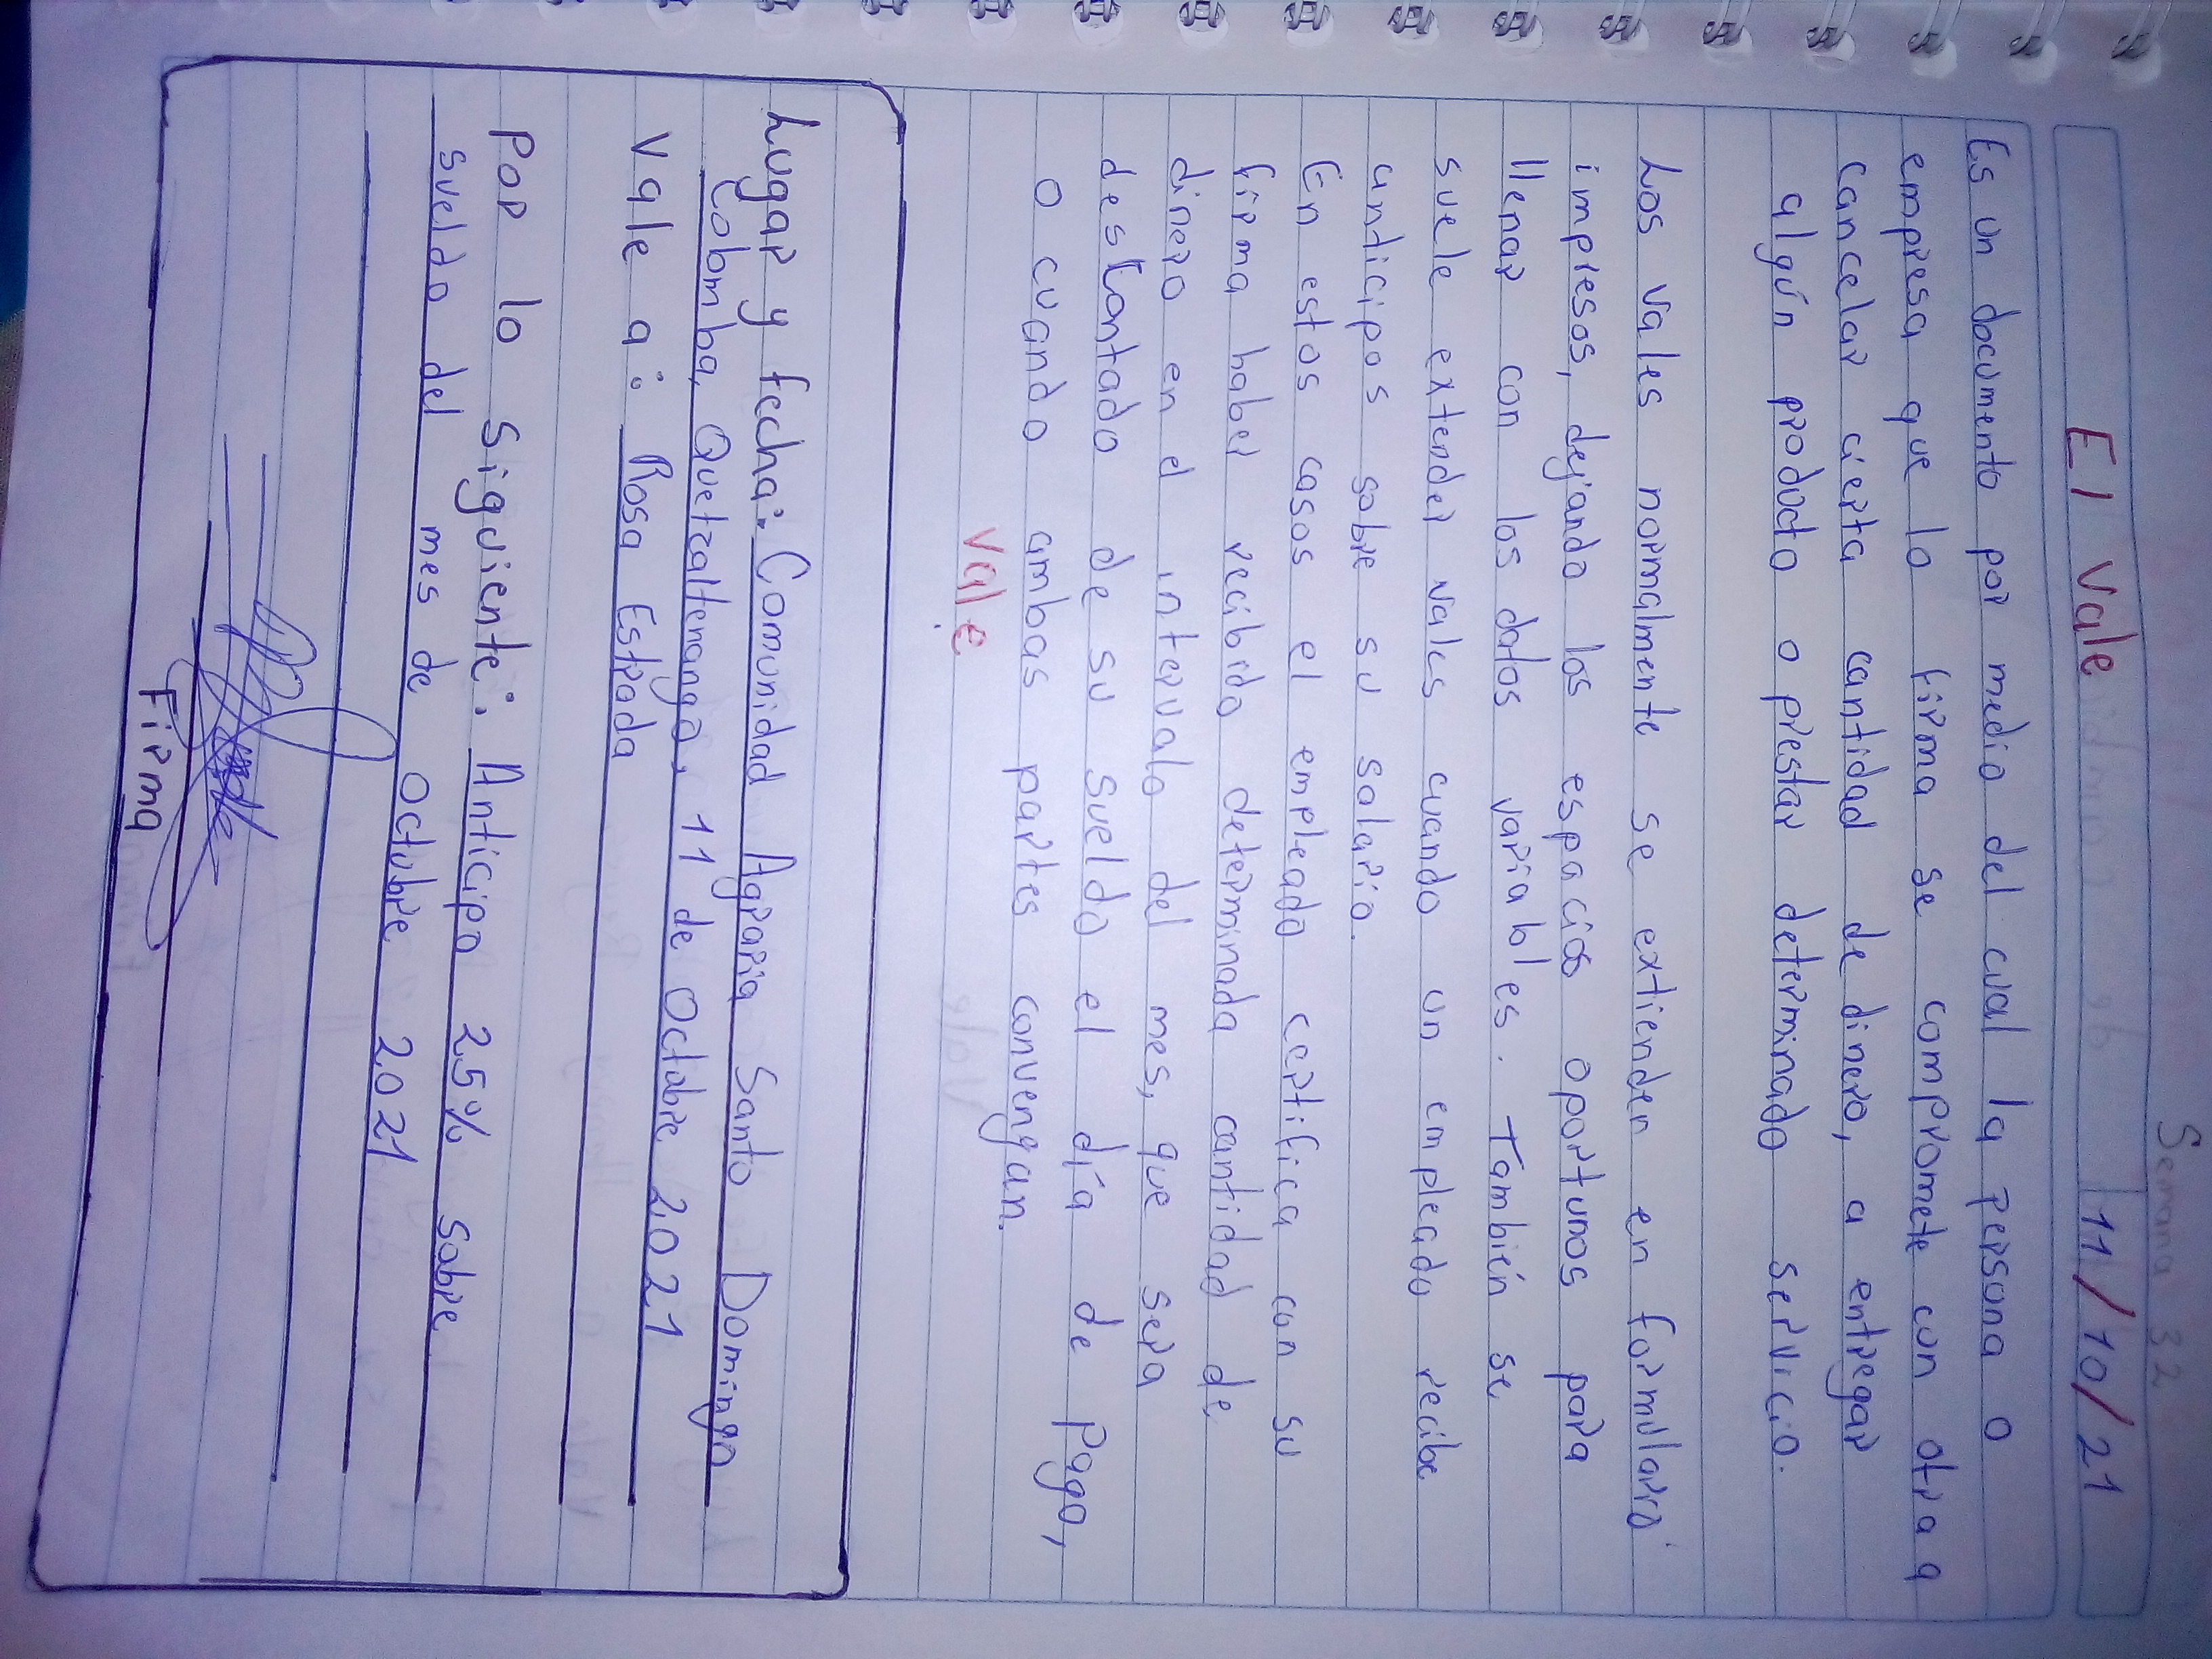 Semana 32
El vale 11/10/21
Es un documento por medio del cual la persona o
empresa que lo firma se compromete con otra a
cancelar cierta cantidad de dinero, a entregar
algún producto o prestar determinado servicio.
Los vales normalmente se extienden en formulario
impresos, dejando los espacios oportunos para
llenar con los datos variables. También se
suele extender vales cuando un empleado recibe
anticipos sobre su salario.
En estos casos el empleado certifica con su
firma haber recibido determinada cantidad de
dinero en el intervalo del mes, que sera
descontado de su sueldo el día de Pago,
o cuando ambas partes convengan.
Vale
Lugar y fecha: Comunidad Agraria Santo Domingo
Colomba, Quetzaltenango, 11 de Octubre 2021
Vale a: Rosa Estrada
Por lo Siguiente: Anticipo 25% sobre
sueldo del mes de Octubre 2021
Firma